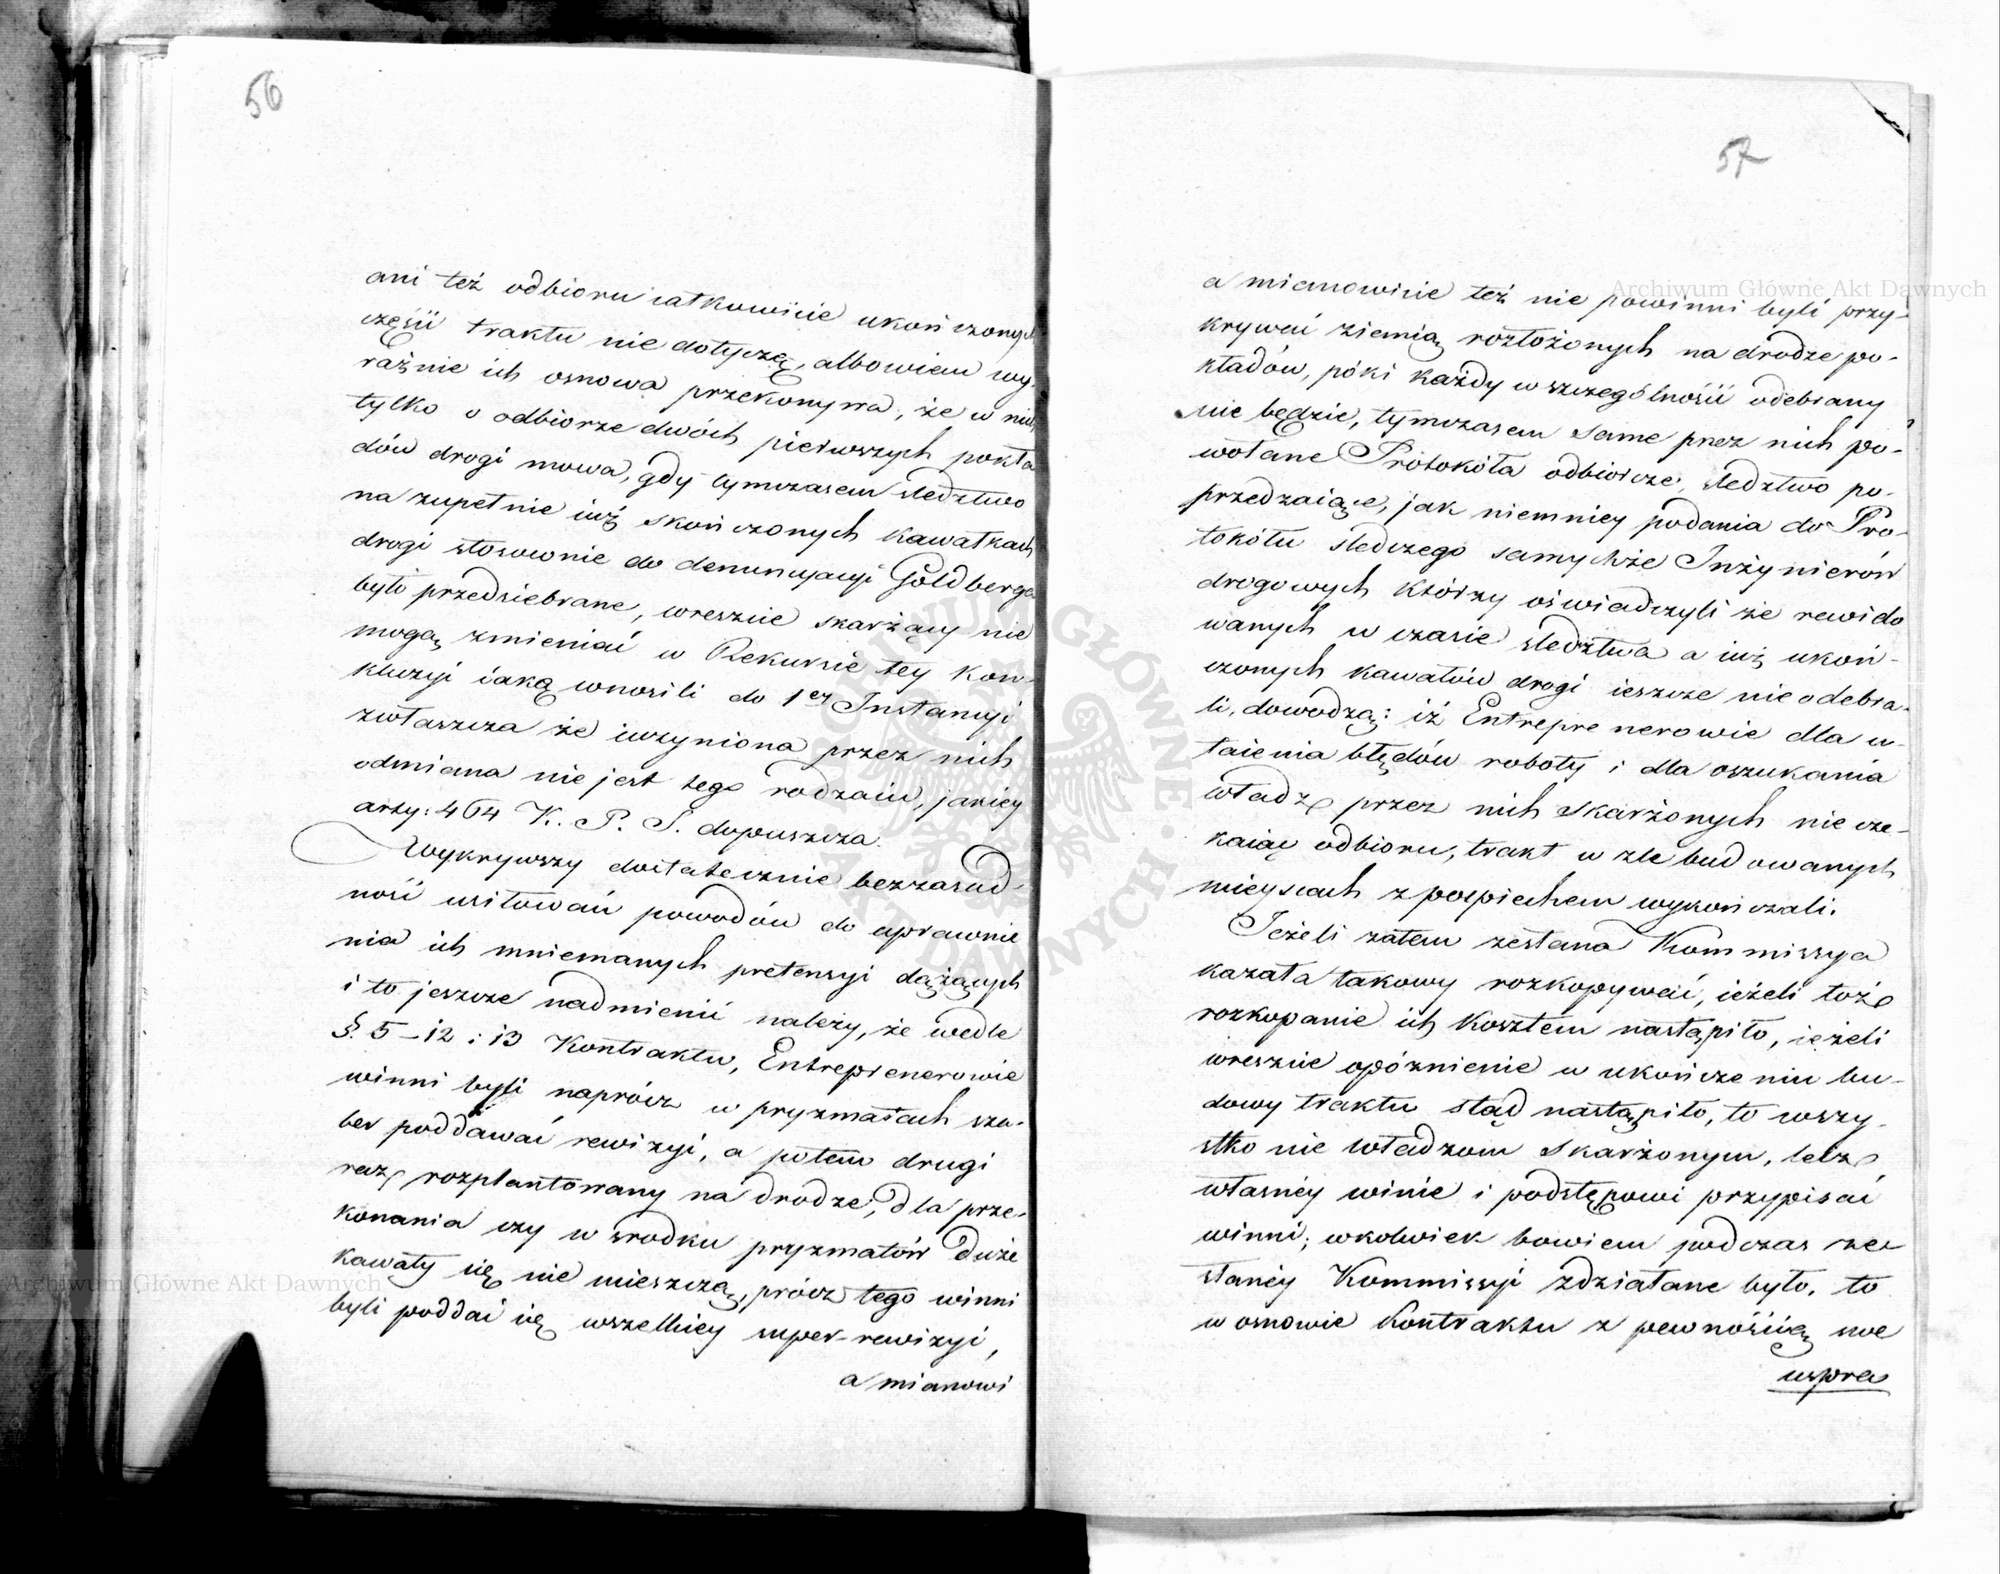 56
ani też odbioru całkowicie ukończonych
części traktu nie dotyczą, albowiem wy-
raźnie ich osnowa przekonywa, że w nich
tylko o odbiorze dwóch pierwszych pokła
dów drogi mowa, gdy tymczasem śledztwo
na zupełnie iuż skończonych kawałkach
drogi stosownie do denuncyacyi Goldberga
było przedsiebrane, wreszcie skarżący nie
mogą zmieniać w Rekursie tey kon-
kluzyi iaką wnosili do 1ey Instancyi
zwłaszcza że uczyniona przez nich
odmiana nie jest tego rodzaiu, jakiey
arty: 464 K. P. S. dopuszcza.
Wykrywszy dostatecznie bezzasad-
ność usiłowań powodów do uprawnie
nia ich mniemanych pretensyi dążących
i to jeszcze nadmienić należy, że wedle
§. 5-12 i 13 Kontraktu, Entreprenerowie
winni byli naprócz w pryzmatach sza-
ber poddawać rewizyi, a potem drugi
raz rozplantowany na drodze, dla prze-
konania czy w środku pryzmatów duże
kawały się nie mieszczą, prócz tego winni
byli poddać się wszelkiey super-rewizyi,
a mianowi
57
a mianowicie też nie powinni byli przy-
krywać ziemią rozłożonych na drodze po-
kładów, póki każdy w szczególności odebrany
nie będzie, tymczasem same przez nich po-
wołane Protokóła odbiorcze, śledztwo po-
przedzaiące, jak niemniey podania do Pro-
tokółu śledczego samychże Inżynierów
drogowych którzy oświadczyli że rewido
wanych w czasie śledztwa a iuż ukoń-
czonych kawałów drogi ieszcze nie odebra-
li, dowodzą: iż Entreprenerowie dla u-
taienia błędów roboty i dla oszukania
władz przez nich skarżonych nie cze-
kaiąc odbioru, trakt w źle budowanych
mieyscach z pospiechem wykończali.
Jeżeli zatem zesłana Kommissya
kazała takowy rozkopywać, ieżeli toż
rozkopanie ich kosztem nastąpiło, ieżeli
wreszcie opóźnienie w ukończeniu bu-
dowy traktu stąd nastąpiło, to wszy-
stko nie władzom skarżonym, lecz
własney winie i podstępowi przypisać
winni; cokolwiek bowiem podczas ze
słaney Kommissyi zdziałane było, to
w osnowie Kontraktu z pewnością swe
uspra
Archiwum Główne Akt Dawnych
Archiwum Główne Akt Dawnych
ARCHIWUM GŁÓWNE · AKT DAWNYCH ·